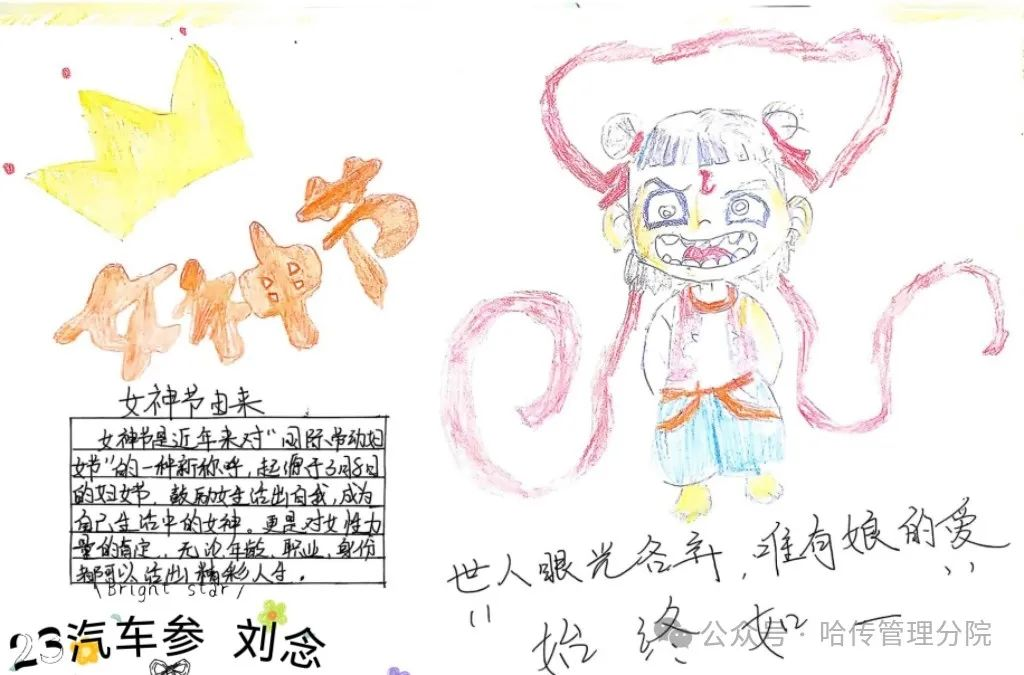 女神节
女神节由来
女神节是近年来对"国际劳动妇
女节"的一种新称呼,起源于3月8日
的妇女节,鼓励女生活出自我,成为
自己生活中的女神。更是对女性力
量的肯定,无论年龄、职业、身份
都可以活出精彩人生。
\Bright star/
23汽车参 刘念
世人眼光各异,唯有娘的爱
"始终如一"
公众号·哈传管理分院